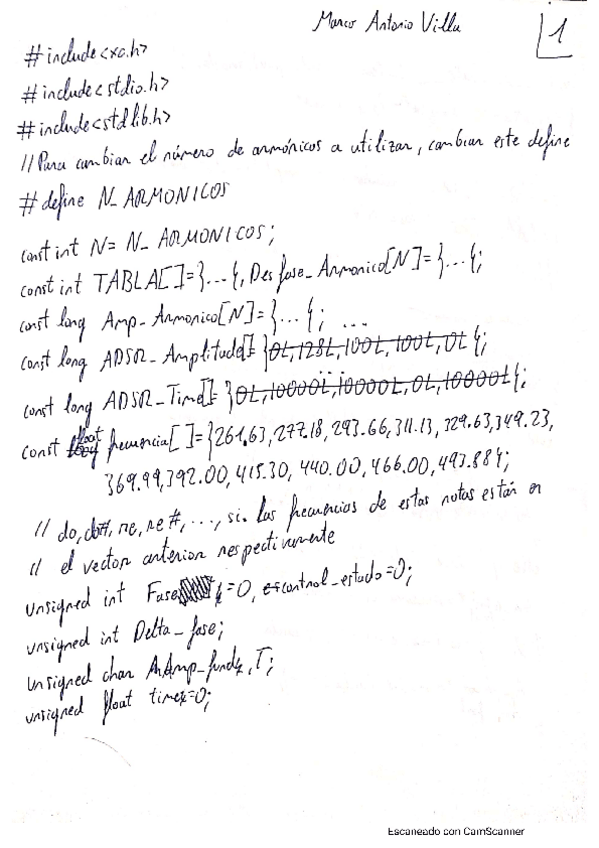 Marco Antonio Villa
1
#include<xc.h>
#include<stdio.h>
#include<stdlib.h>
//Para cambiar el número de armónicos a utilizar, cambiar este define
#define N_ARMONICOS
const int N= N_ARMONICOS;
const int TABLA[]={...}, Desfase_Armonico[N]={...};
const long Amp_Armonico[N]={...}; ...
const long ADSR_Amplitude[]={0L,128L,100L,100L,0L};
const long ADSR_Time[]={0L,10000L,10000L,0L,10000L};
const float frecuencia[]={261.63,277.18,293.66,311.13,329.63,349.23,
369.99,392.00,415.30,440.00,466.00,493.88};
// do, do#, re, re#, ..., si. Las frecuencias de estas notas están en
// el vector anterior respectivamente
unsigned int Fase =0, control_estado=0;
unsigned int Delta_fase;
unsigned char Amp_fund, T;
unsigned float time=0;
Escaneado con CamScanner